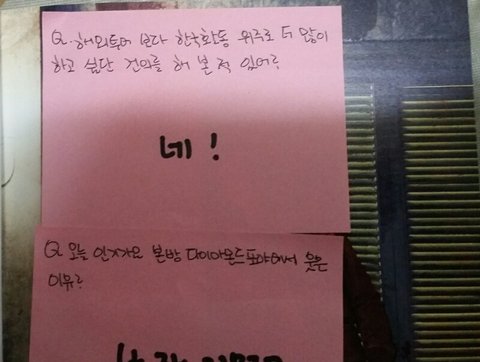 Q. 해외투어 보다 한국활동 위주로 더 많이
하고 싶단 건의를 해 본 적 있어?
네!
Q. 오늘 인기가요 본방 다이아몬드 포야에서 웃은
이유?